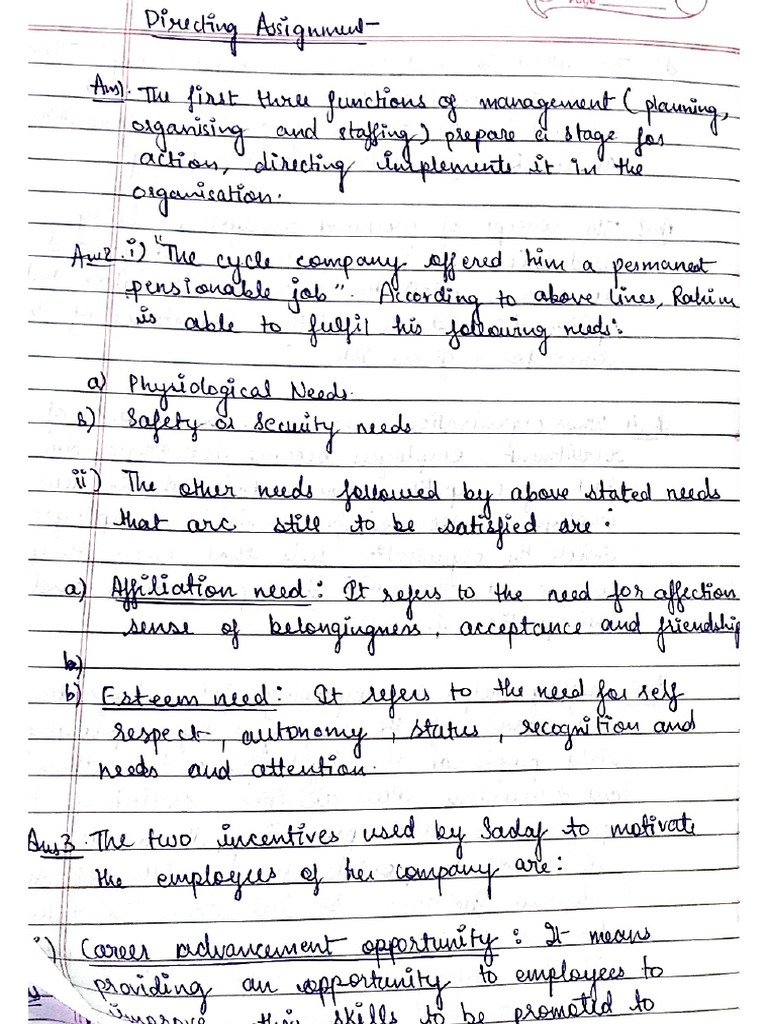 Page
Directing Assignment-
Ans1. The first three functions of management (planning,
organising and staffing) prepare a stage for
action, directing implements it in the
organisation.
Ans2. i) "The cycle company offered him a permanent
pensionable job". According to above lines, Rahim
is able to fulfil his following needs:
a) Physiological Needs.
b) Safety or Security needs
ii) The other needs followed by above stated needs
that are still to be satisfied are:
a) Affiliation need: It refers to the need for affection
sense of belongingness, acceptance and friendship
b)
b) Esteem need: It refers to the need for self
respect, autonomy, status, recognition and
needs and attention.
Ans3. The two incentives used by Sadaf to motivate
the employees of her company are:
i) Career advancement opportunity: It means
providing an opportunity to employees to
improve their skills to be promoted to